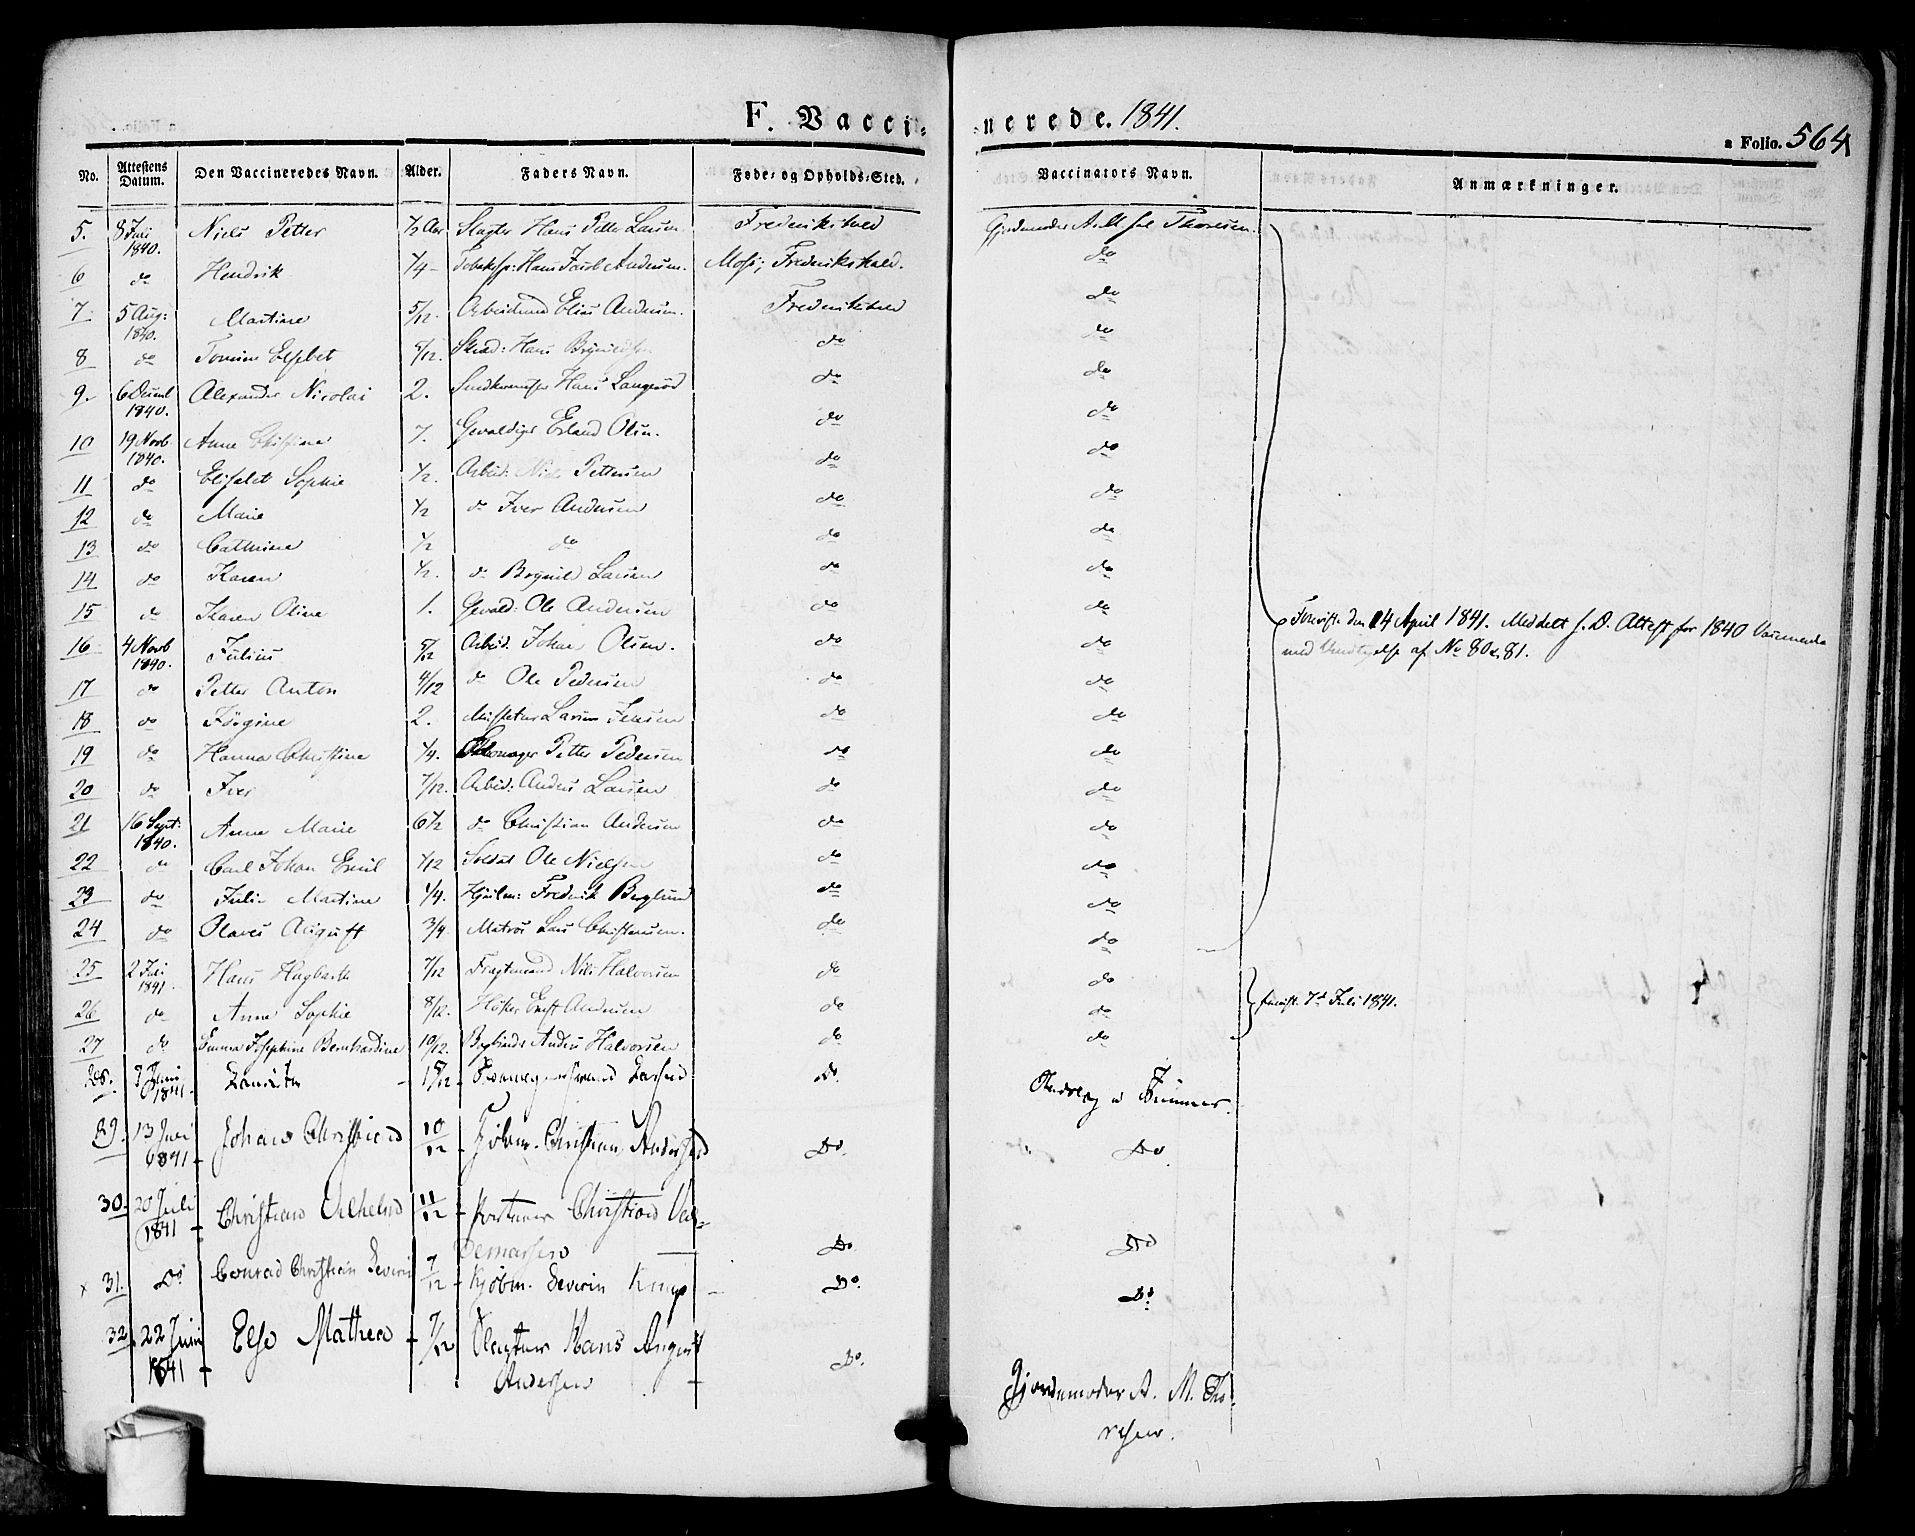 F. Vaccinerede. 1841.
a Folio. 564
No. Attestens Datum. Den Vaccineredes Navn. Alder. Faders Navn. Føde- og Opholds-Sted. Vaccinators Navn. Anmærkninger.
5. 8 Juli 1840. Niels Petter 1/2 Aar Slagter Hans Petter Larsen Frederikshald Thoresen.
6 do Hendrik 1/4 Hans Jacob Andersen. Moss; Frederikshald. do
7 5 Aug: 1840. Martine 5/12. Elias Andersen. Frederikshald do
8 do Elsebet 5/12. Skræd: Hans do do
9. 6 1840. Alexander Nicolai 2. Hans Langerød do do
10 19 Novb 1840. Anne Christine 7. Gevaldiger Erland Olsen. do do
11 do Elisabet Sophie 1/2. Arbeid: Niels Pettersen do do
12 do Marie 1/2 do Iver Andersen do do
13 do Cathrine 1/2 do do do
14 do Karen 1/2. do Larsen do do
15 do Karen Oline 1. Gevald: Ole Andersen do do
16 4 Novb 1840. Julius 5/12 Arbeid. Johan Olsen. do do
Forevist den 14 April 1841. Meddelt Attest for 1840
med Undtagelse af No 80 & 81.
17 do Petter Anton 4/12 do Ole Pedersen do do
18 do Jørgine 2. Jensen do do
19 do Hanna Christine 1/4. Petter Pedersen do do
20 do Iver 7/12. Arbeid: Anders Larsen do do
21 16 Sept: 1840. Anne Marie 6 1/2 do Christian Andersen do do
22 do Carl Johan Emil 1/12 Soldat Ole Nielsen do do
23 do Julie Martine 1/4. Frederik Berglund do do
24 do Olaves August 3/4. Matros Lars Christensen. do do
25 2 Juli 1841. Hans Hagbarth 7/12 Fragtemand Nils Halvorsen do do
26 do Anne Sophie 8/12. Andersen do do
forevist 7d Juli 1841.
27 do Emma Josephine Bernhardine 10/12. Anders Halvorsen do do
28. 1841. Do.
29. 13 Juli 1841 Johan Christian 10/12 Kjøbm. Christian Andersen Do. Do
30. 20 Juli 1841 Christian Vilhelm 11/12 Christian Valdemarsen Do Do
31. Do Conrad Christian Severin 7/12 Kjøbm. Severin Do. Do
32. 22 Juni 1841 Else Mathea 7/12 Slagter Hans August
Andersen Do. Gjordemoder A. M. Tho-
resen.